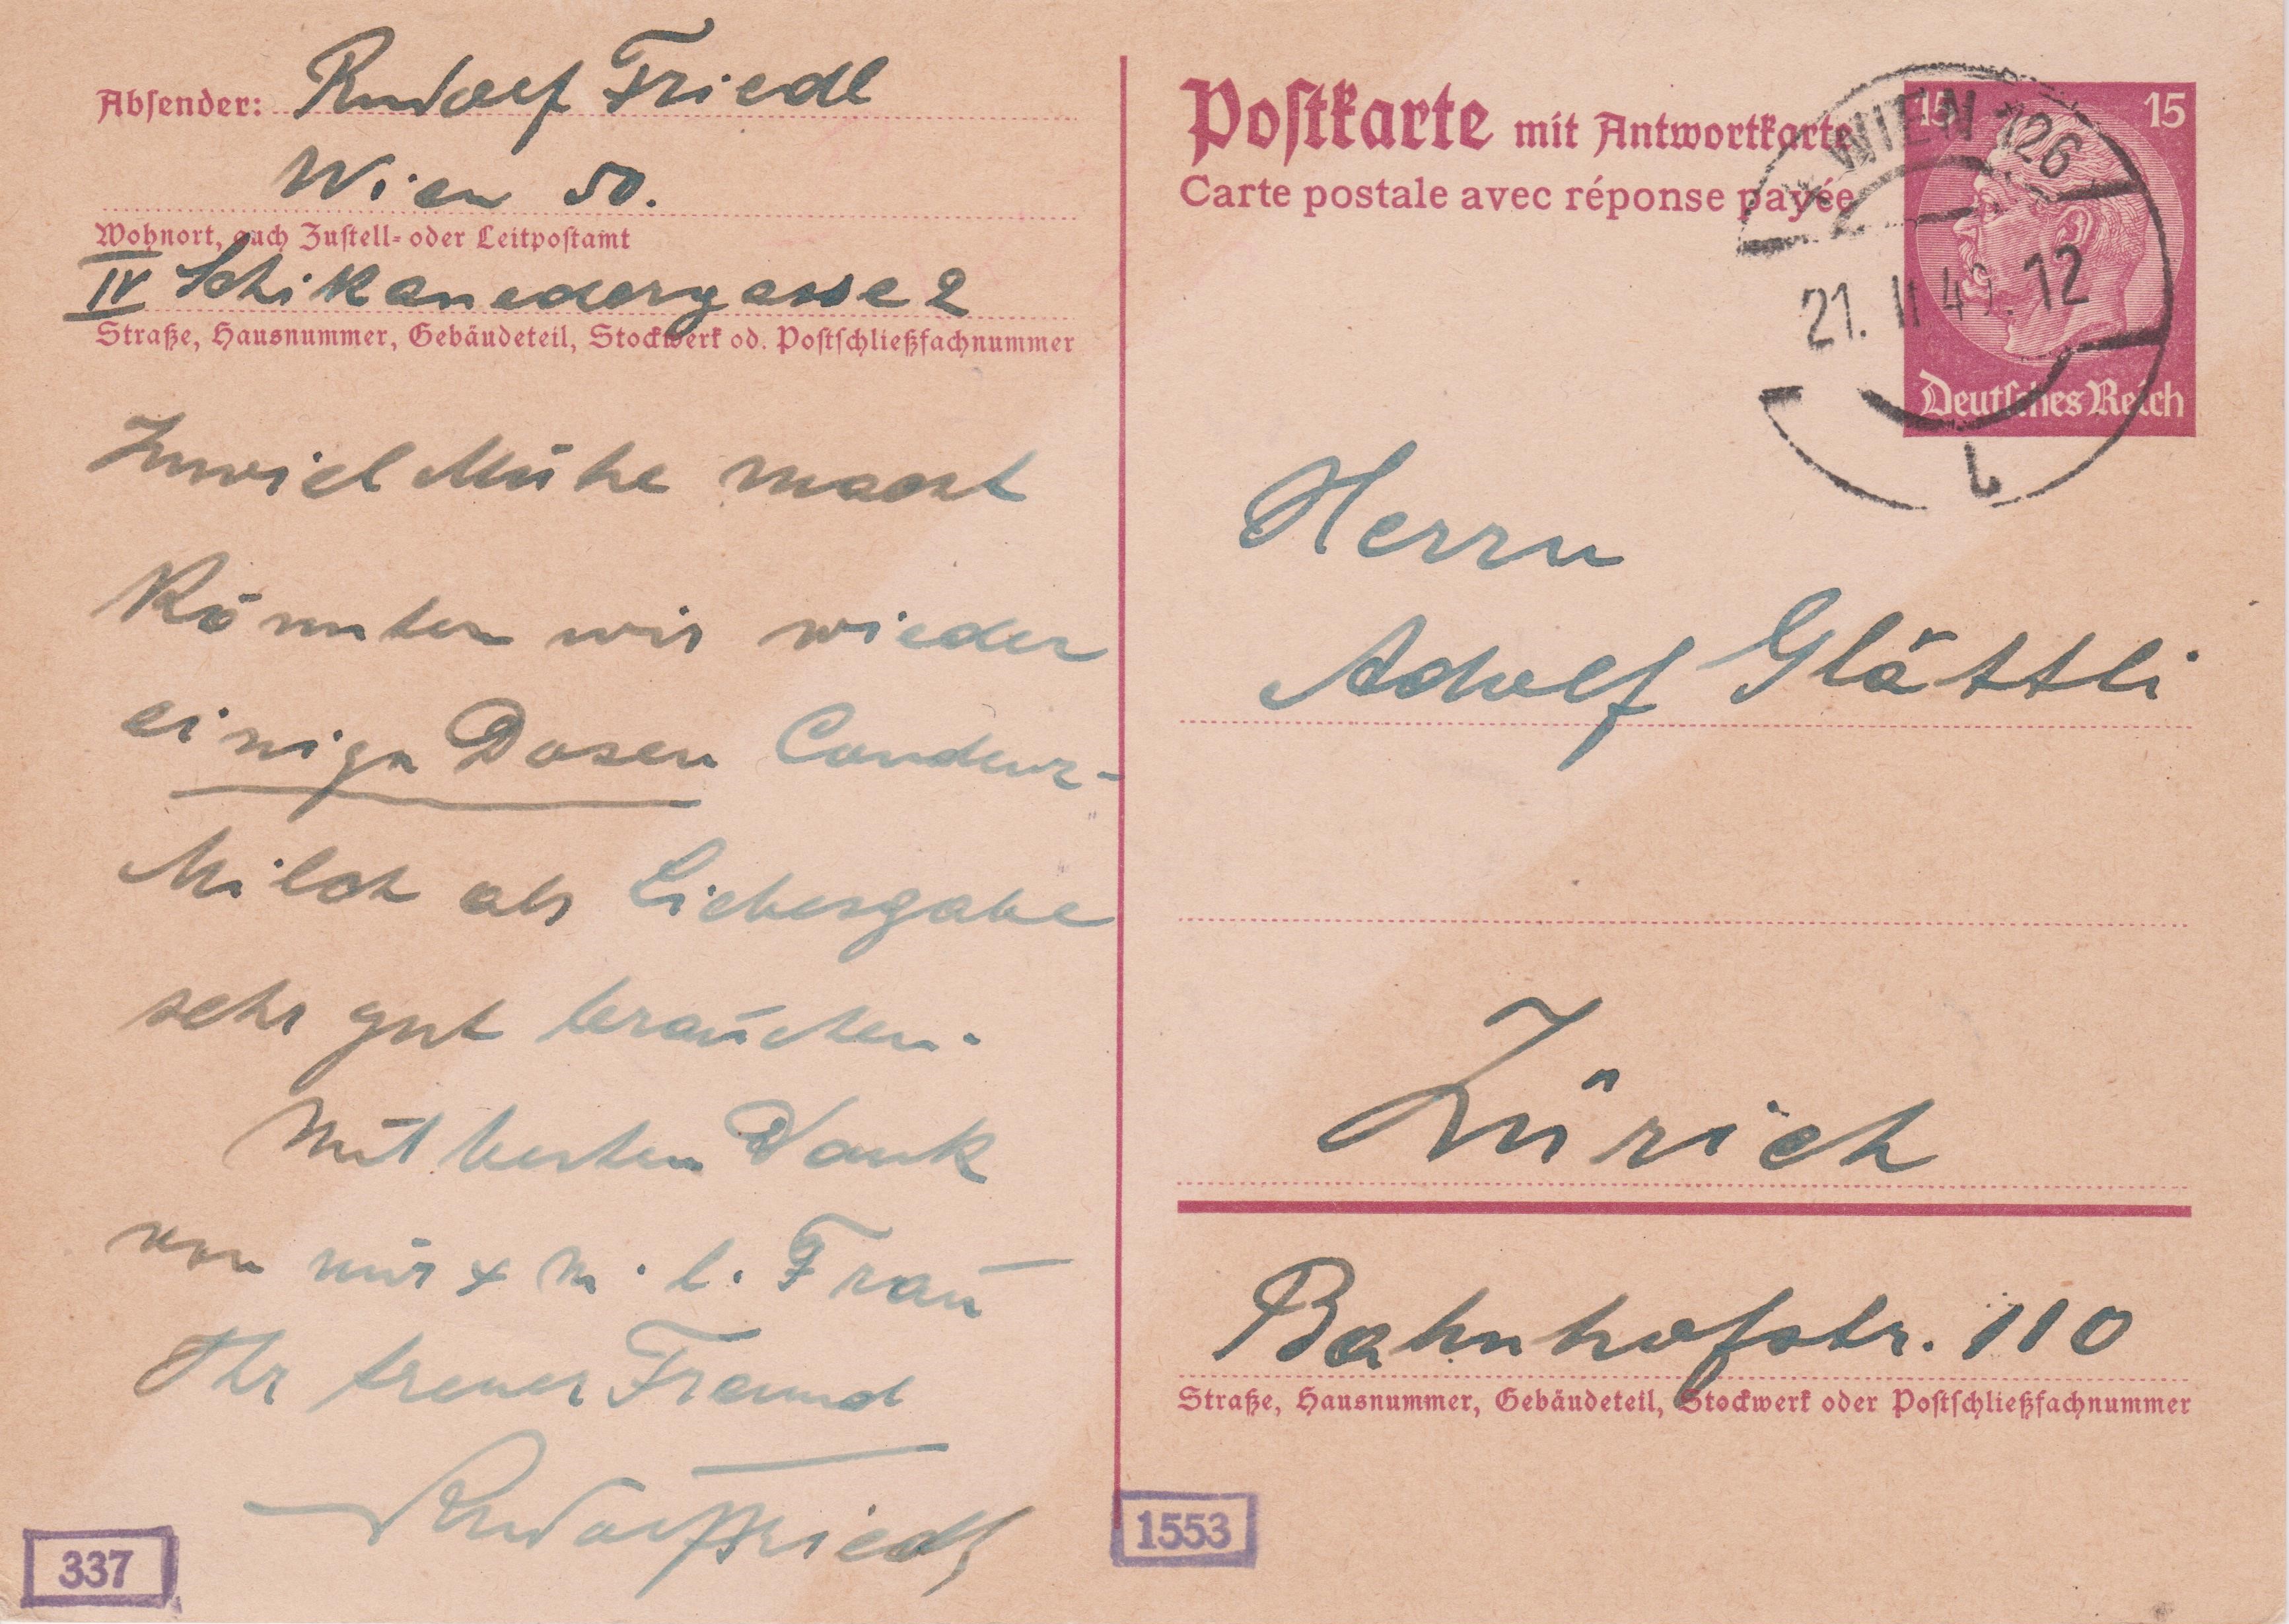 Absender: Rudolf Friedl
Wien 50.
Wohnort, auch Zustell- oder Leitpostamt
IV Schikanedergasse 2
Straße, Hausnummer, Gebäudeteil, Stockwerk od. Postschließfachnummer
Zuviel Mühe macht
könnten wir wieder
einige Dosen Condenz-
Milch als Liebesgabe
sehr gut brauchen.
Mit besten Dank
von mir + m. l. Frau
Ihr treuer Freund
Rudolf Friedl
337
Postkarte mit Antwortkarte
Carte postale avec réponse payée
15 15
Deutsches Reich
WIEN 126
21. II 12
Herrn
Adolf Glättli
Zürich
Bahnhofstr. 110
Straße, Hausnummer, Gebäudeteil, Stockwerk oder Postschließfachnummer
1553